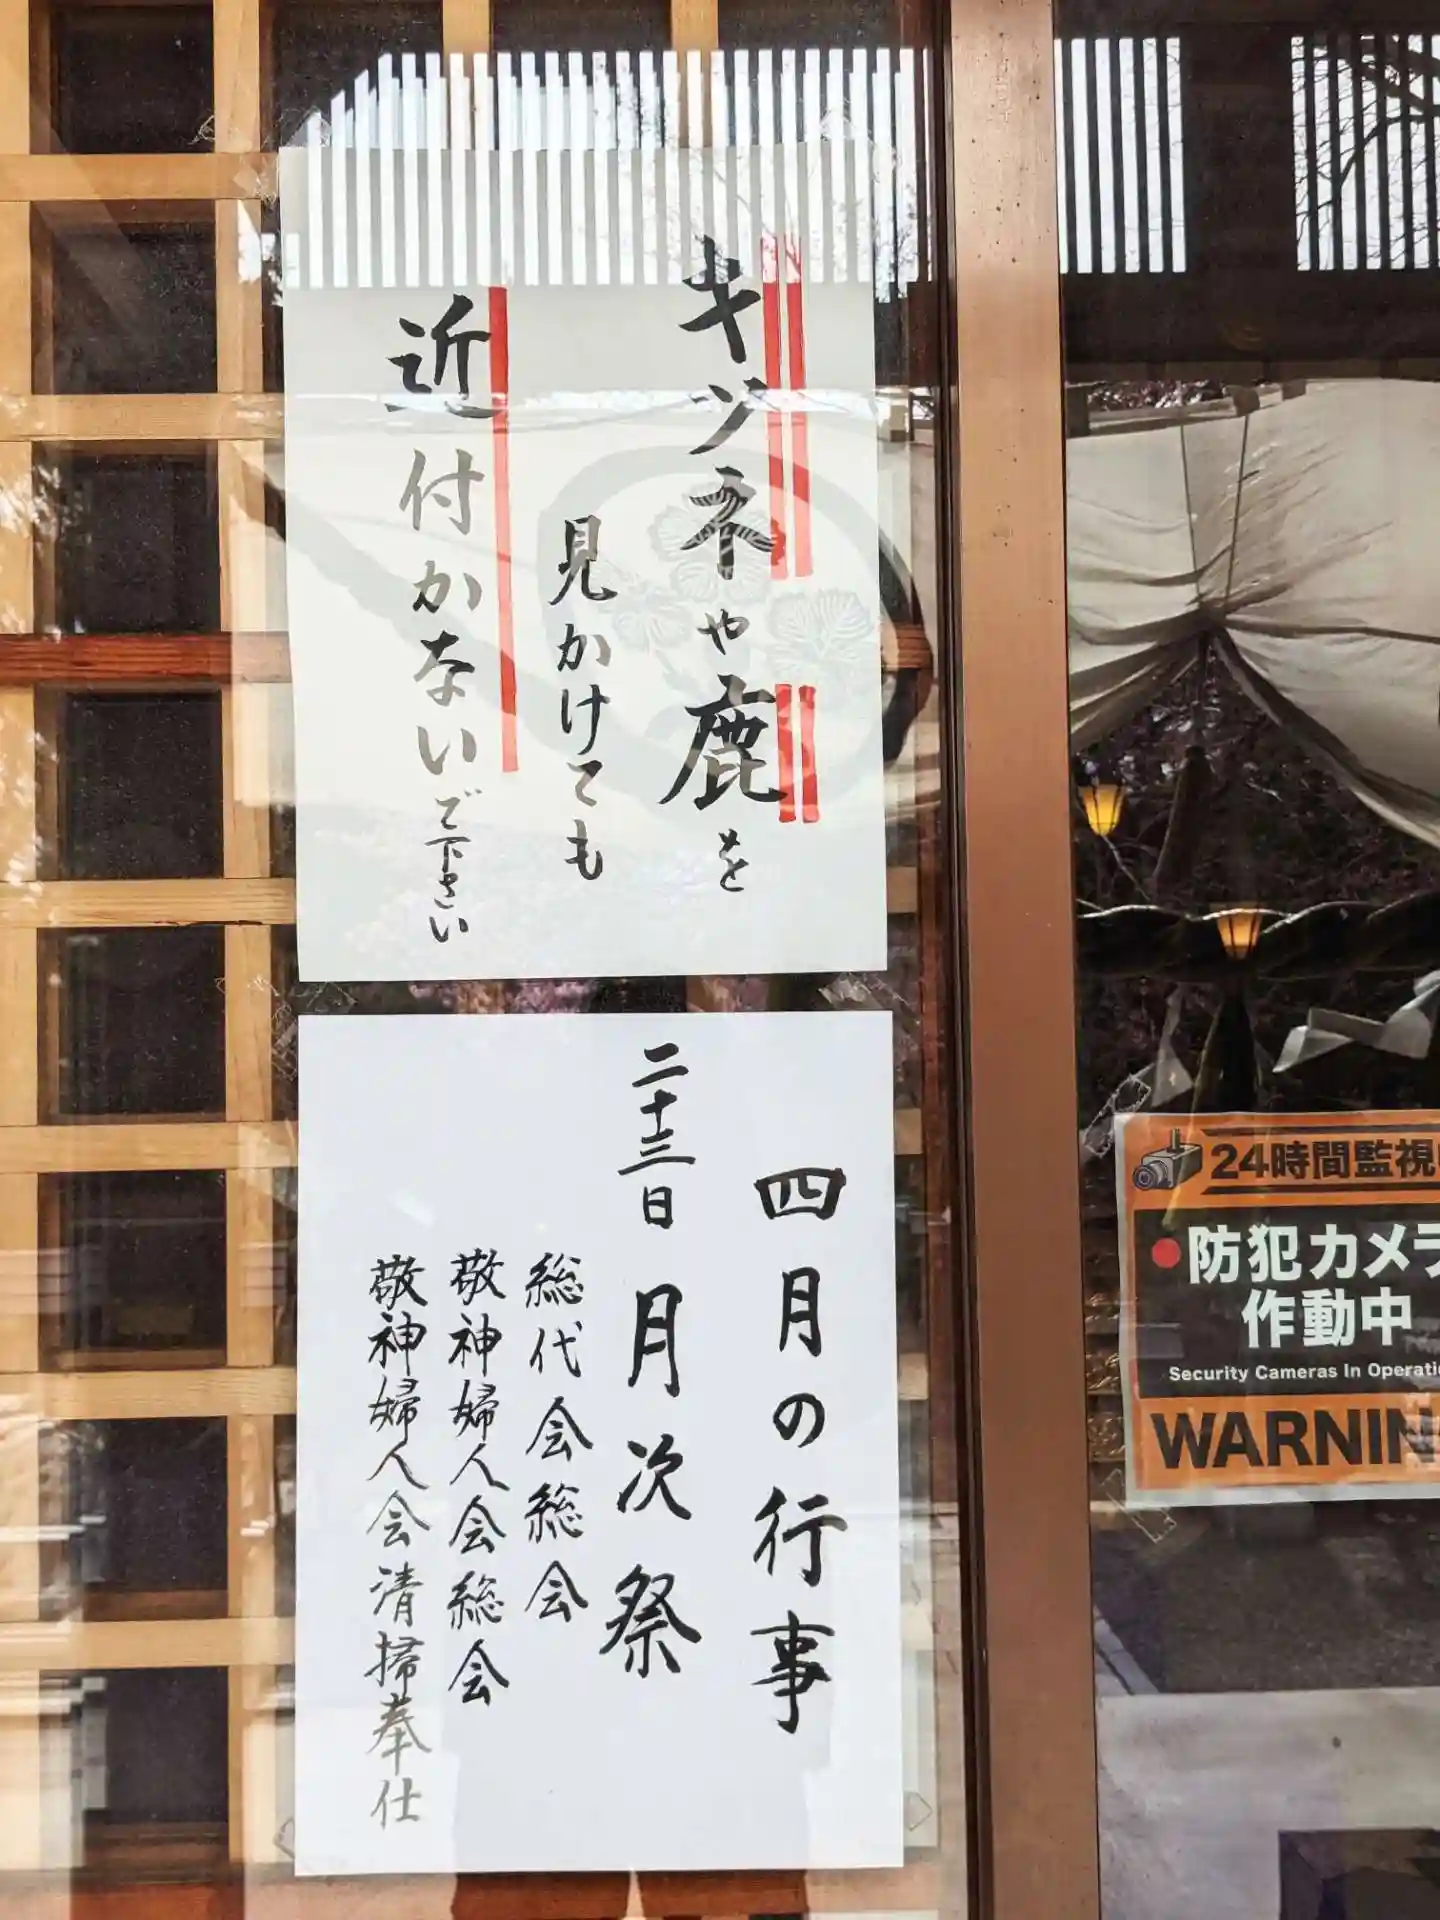 キツネや鹿を
見かけても
近付かないで下さい
四月の行事
二十三日 月次祭
総代会総会
敬神婦人会総会
敬神婦人会清掃奉仕
24時間監視
防犯カメラ
作動中
Security Cameras In Operatio
WARNIN